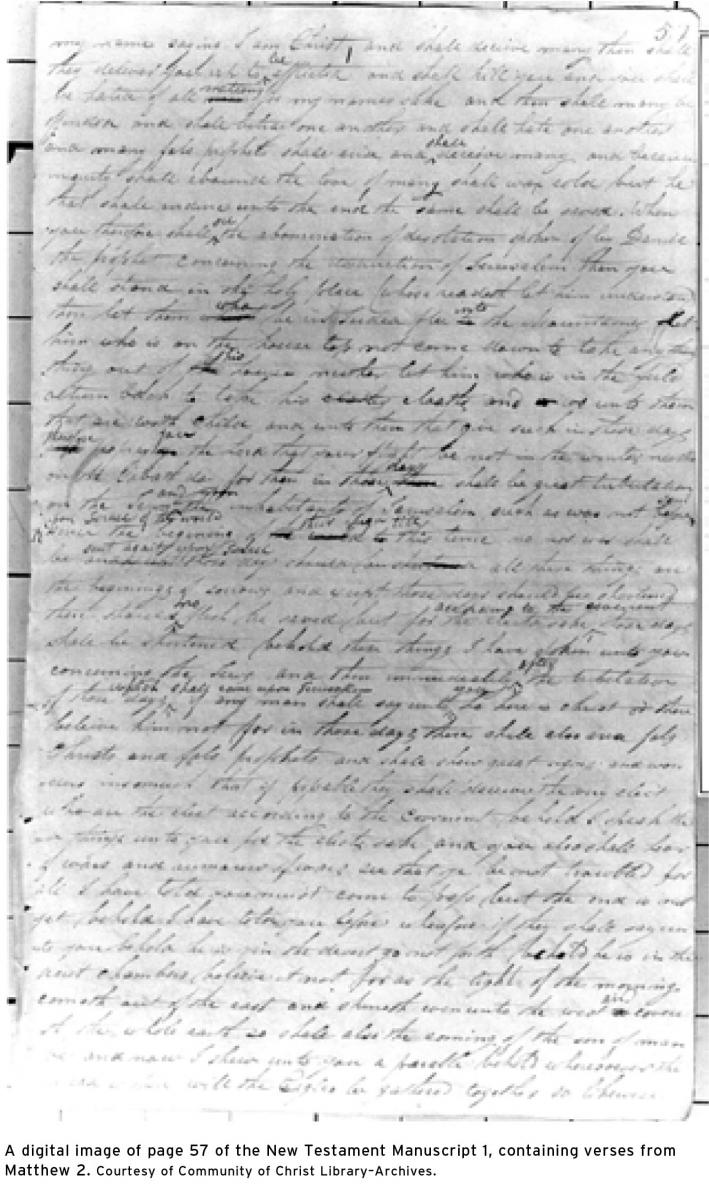 57
my name saying I am Christ and shall deceive many then shall
they deliver you up to be afflicted and shall kill you and you shall
be hated of all nations for my names sake and then shall many be
and shall betray one another and shall hate one another
and many fals prophets shall arise and shall deceive many and because
iniquity shall abound the love of many shall wax cold but he
that shall endure unto the end the same shall be saved When
you therefore shall see the abomination of desolation spoken of by Daniel
the prophet concerning the destruction of Jerusalem then you
shall stand in the holy place whoso readeth let him understand
then let them who be in Judea flee into the mountains let
him who is on the house top not come down to take any
thing out of his house neither let him who is in the field
return back to take his cloaths and wo unto them
that are with child and unto them that give suck in those days
therefore pray you the Lord that your flight be not in the winter neither
on the Sabath day for then in those days shall be great tribulation
on the Jews and upon inhabitants of Jerusalem such as was not
upon Israel of the beginning of to this time no nor shall
be sent again upon Israel all these things are
the beginning of sorrows and except those days should be shortened
there should no flesh be saved but for the elects sake according to the covenant those days
shall be shortened behold these things I have spoken unto you
concerning the Jews and then immediately after the tribulation
of those days which shall come upon Jerusalem if any man shall say unto you lo here is christ or there
believe him not for in those days there shall also arise fals
Christs and fals prophets and shall show great signs and won
insomuch that if possible they shall deceive the very elect
who are the elect according to the covenant behold I speak the
things unto you for the elects sake and you also shall hear
of wars and rumours of wars see that ye be not troubled for
all I have told you must come to pass but the end is not
yet behold I have told you before wherefore if they shall say un
to you behold he is in the desert go not forth behold he is in the
chambers believe it not for as the light of the morning
cometh out of the east and shineth even unto the west and cover
the whole earth so shall also the coming of the son of man
be and now I shew unto you a parable behold wheresoever the
will the Eagles be gathered together so likewise
A digital image of page 57 of the New Testament Manuscript 1, containing verses from
Matthew 2. Courtesy of Community of Christ Library–Archives.